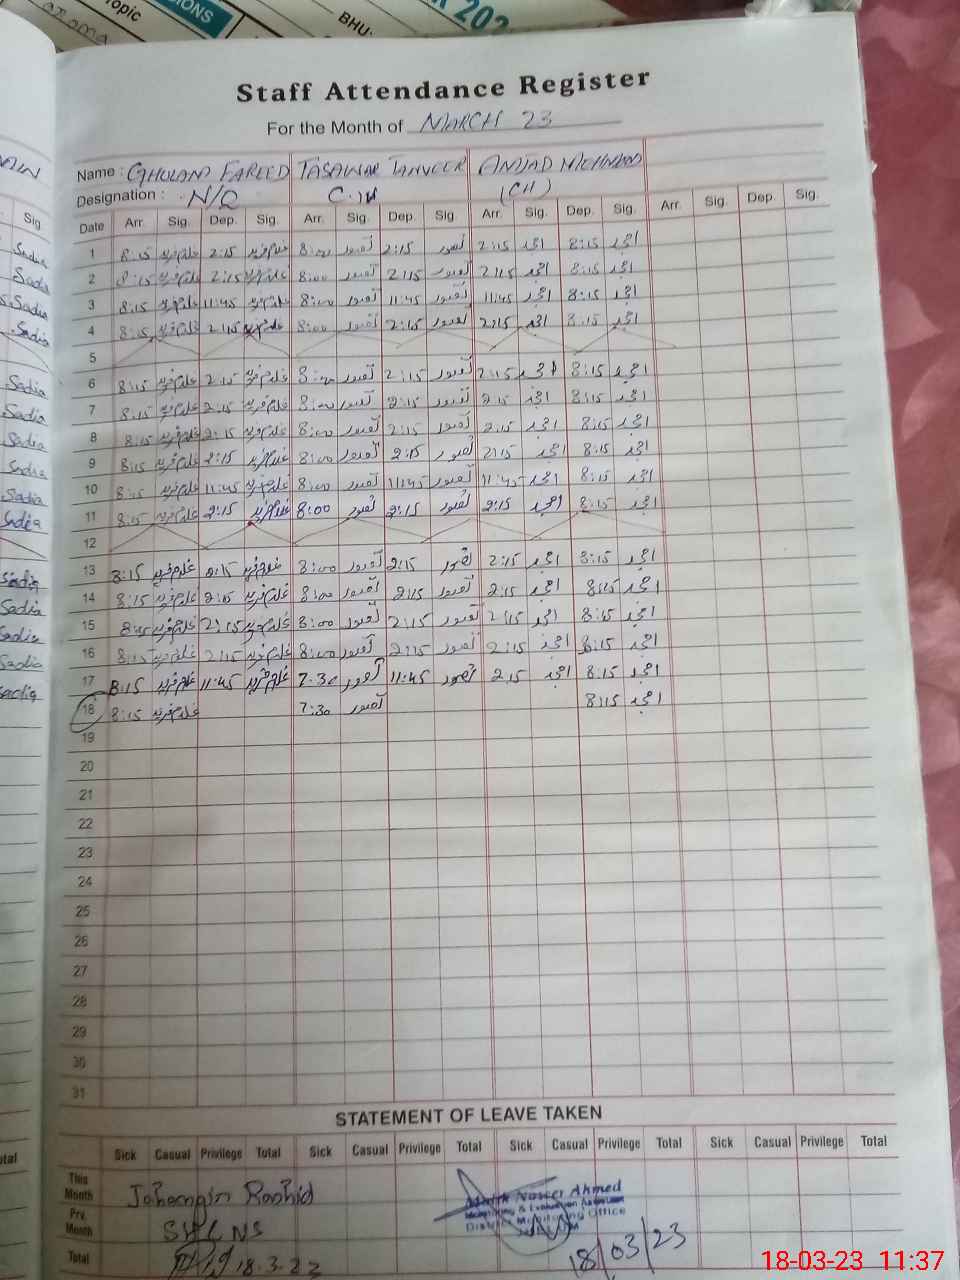 Topic
IONS
BHU
202
Staff Attendance Register
For the Month of MARCH 23
Name : GHULAM FAREED TASAWAR TANVEER AMJAD
Designation : N/Q (CH)
Date Arr. Sig. Dep. Sig. Arr. Sig. Dep. Sig. Arr. Sig. Dep. Sig. Arr. Sig. Dep. Sig.
1 8:15 غلام فرید 2:15 غلام فرید 8:00 تصور 2:15 تصور 2:15 امجد 8:15 امجد
2 8:15 غلام فرید 2:15 غلام فرید 8:00 تصور 2:15 تصور 2:15 امجد 8:15 امجد
3 8:15 غلام فرید 11:45 غلام فرید 8:00 تصور 11:45 تصور 11:45 امجد 8:15 امجد
4 8:15 غلام فرید 2:15 غلام فرید 8:00 تصور 2:15 تصور 2:15 امجد 8:15 امجد
5
6 8:15 غلام فرید 2:15 غلام فرید 8:00 تصور 2:15 تصور 2:15 امجد 8:15 امجد
7 8:15 غلام فرید 2:15 غلام فرید 8:00 تصور 2:15 تصور 2:15 امجد 8:15 امجد
8 8:15 غلام فرید 2:15 غلام فرید 8:00 تصور 2:15 تصور 2:15 امجد 8:15 امجد
9 8:15 غلام فرید 2:15 غلام فرید 8:00 تصور 2:15 تصور 2:15 امجد 8:15 امجد
10 8:15 غلام فرید 11:45 غلام فرید 8:00 تصور 11:45 تصور 11:45 امجد 8:15 امجد
11 8:15 غلام فرید 2:15 غلام فرید 8:00 تصور 2:15 تصور 2:15 امجد 8:15 امجد
12
13 8:15 غلام فرید 2:15 غلام فرید 8:00 تصور 2:15 تصور 2:15 امجد 8:15 امجد
14 8:15 غلام فرید 2:15 غلام فرید 8:00 تصور 2:15 تصور 2:15 امجد 8:15 امجد
15 8:15 غلام فرید 2:15 غلام فرید 8:00 تصور 2:15 تصور 2:15 امجد 8:15 امجد
16 8:15 غلام فرید 2:15 غلام فرید 8:00 تصور 2:15 تصور 2:15 امجد 8:15 امجد
17 8:15 غلام فرید 11:45 غلام فرید 7:30 تصور 11:45 تصور 2:15 امجد 8:15 امجد
18 8:15 غلام فرید 7:30 تصور 8:15 امجد
19
20
21
22
23
24
25
26
27
28
29
30
31
STATEMENT OF LEAVE TAKEN
Sick Casual Privilege Total Sick Casual Privilege Total Sick Casual Privilege Total Sick Casual Privilege Total
This Month Jahangir Rashid
Malik Naseer Ahmed
Monitoring & Evaluation Assistant
District Monitoring Office
Prv. Month
Total 18.3.23 18/03/23
Sig
Sadia
Sadia
Sadia
Sadia
Sadia
Sadia
Sadia
Sadia
Sadia
Sadia
Sadia
Sadia
Sadia
Sadia
Sadia
18-03-23 11:37